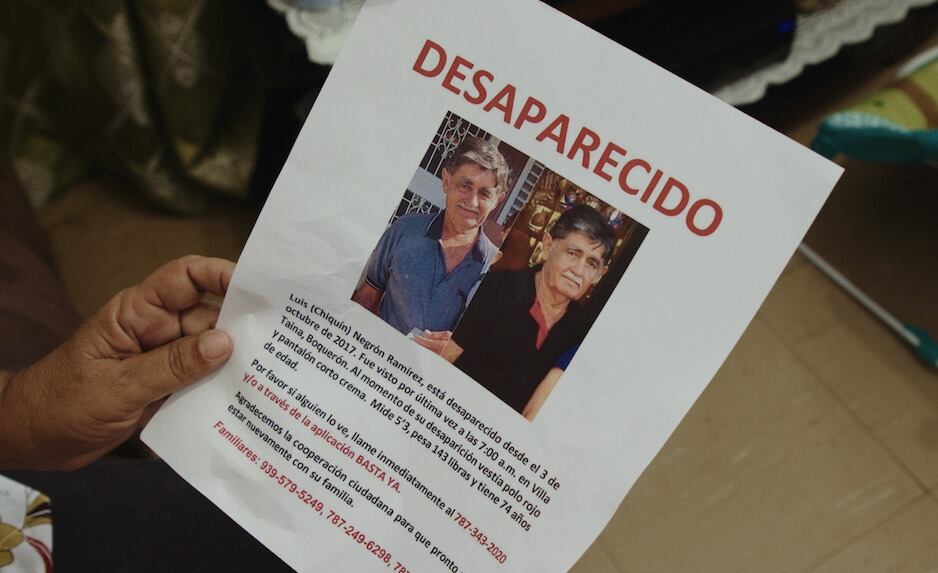 DESAPARECIDO
Luis (Chiquín) Negrón Ramírez, está desaparecido desde el 3 de
octubre de 2017. Fue visto por última vez a las 7:00 a.m. en Villa
Taina, Boquerón. Al momento de su desaparición vestía polo rojo
y pantalón corto crema. Mide 5'3, pesa 143 libras y tiene 74 años
de edad.
Por favor si alguien lo ve, llame inmediatamente al 787-343-2020
y/o a través de la aplicación BASTA YA.
Agradecemos la cooperación ciudadana para que pronto
estar nuevamente con su familia.
Familiares: 939-579-5249, 787-249-6298,